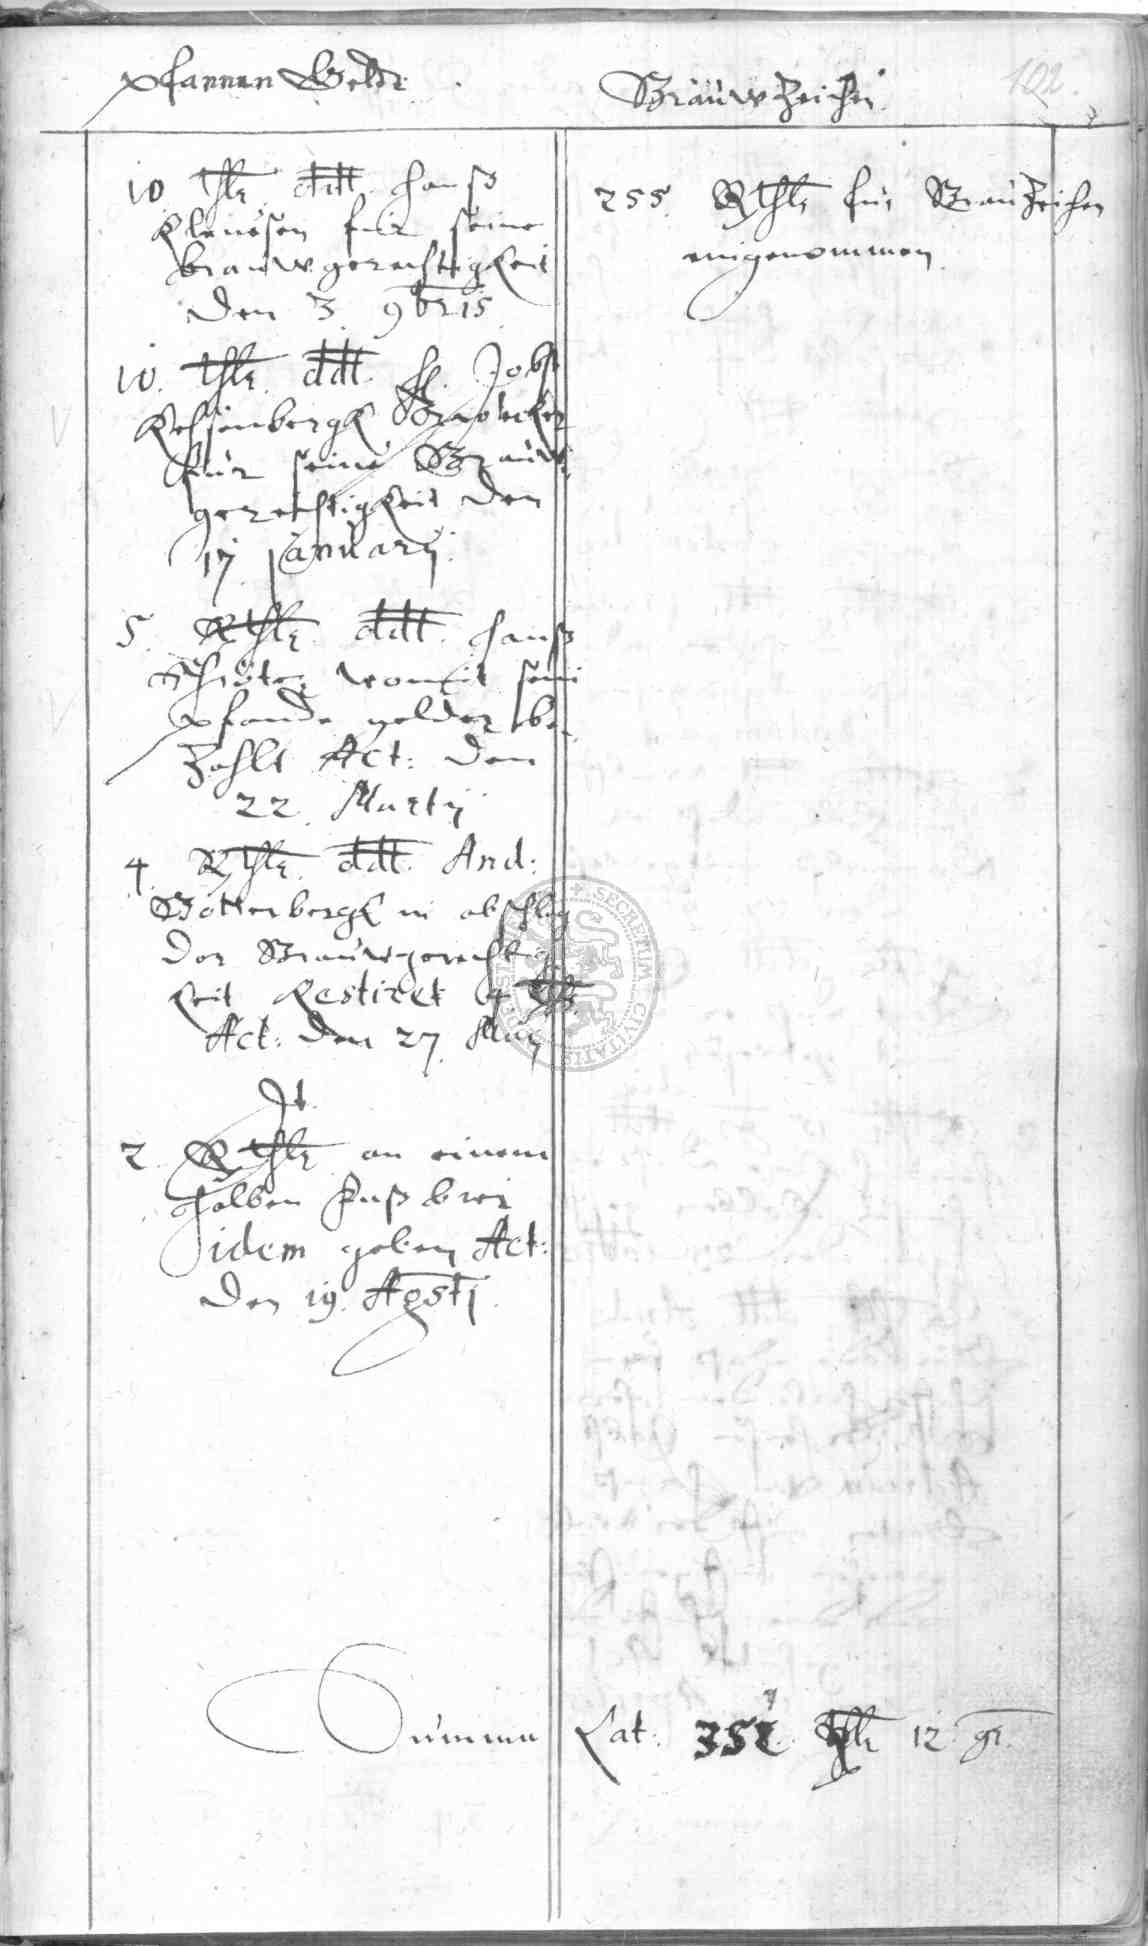 Pfannen Geldt
Brauw Zeichen
102.
10 thlr ddt. Hanß
Clausen fur seine
brauwgerechtigkeit
den 3. 9bris
10. thlr. ddt. H. Jobst
Brauwer
fur seine Brauw
gerechtigkeit den
17 January.
5. Rthlr. ddt. Hanß
Schröter womit seine
pfande gelder be
zahlt Act: den
22. Martij
4. Rthlr. ddt. And:
Bottenbergk in abschlag
der Brauwgerechtig
keit Restiret 4
Act: den 27. Maij
2. Rthlr an einem
halben Fuß bier
idem geben Act:
den 19. Agsti
255. Rthlr fur BrauZeichen
eingenommen.
SECRETUM CIVITATIS
Summa Lat: 12 gr.